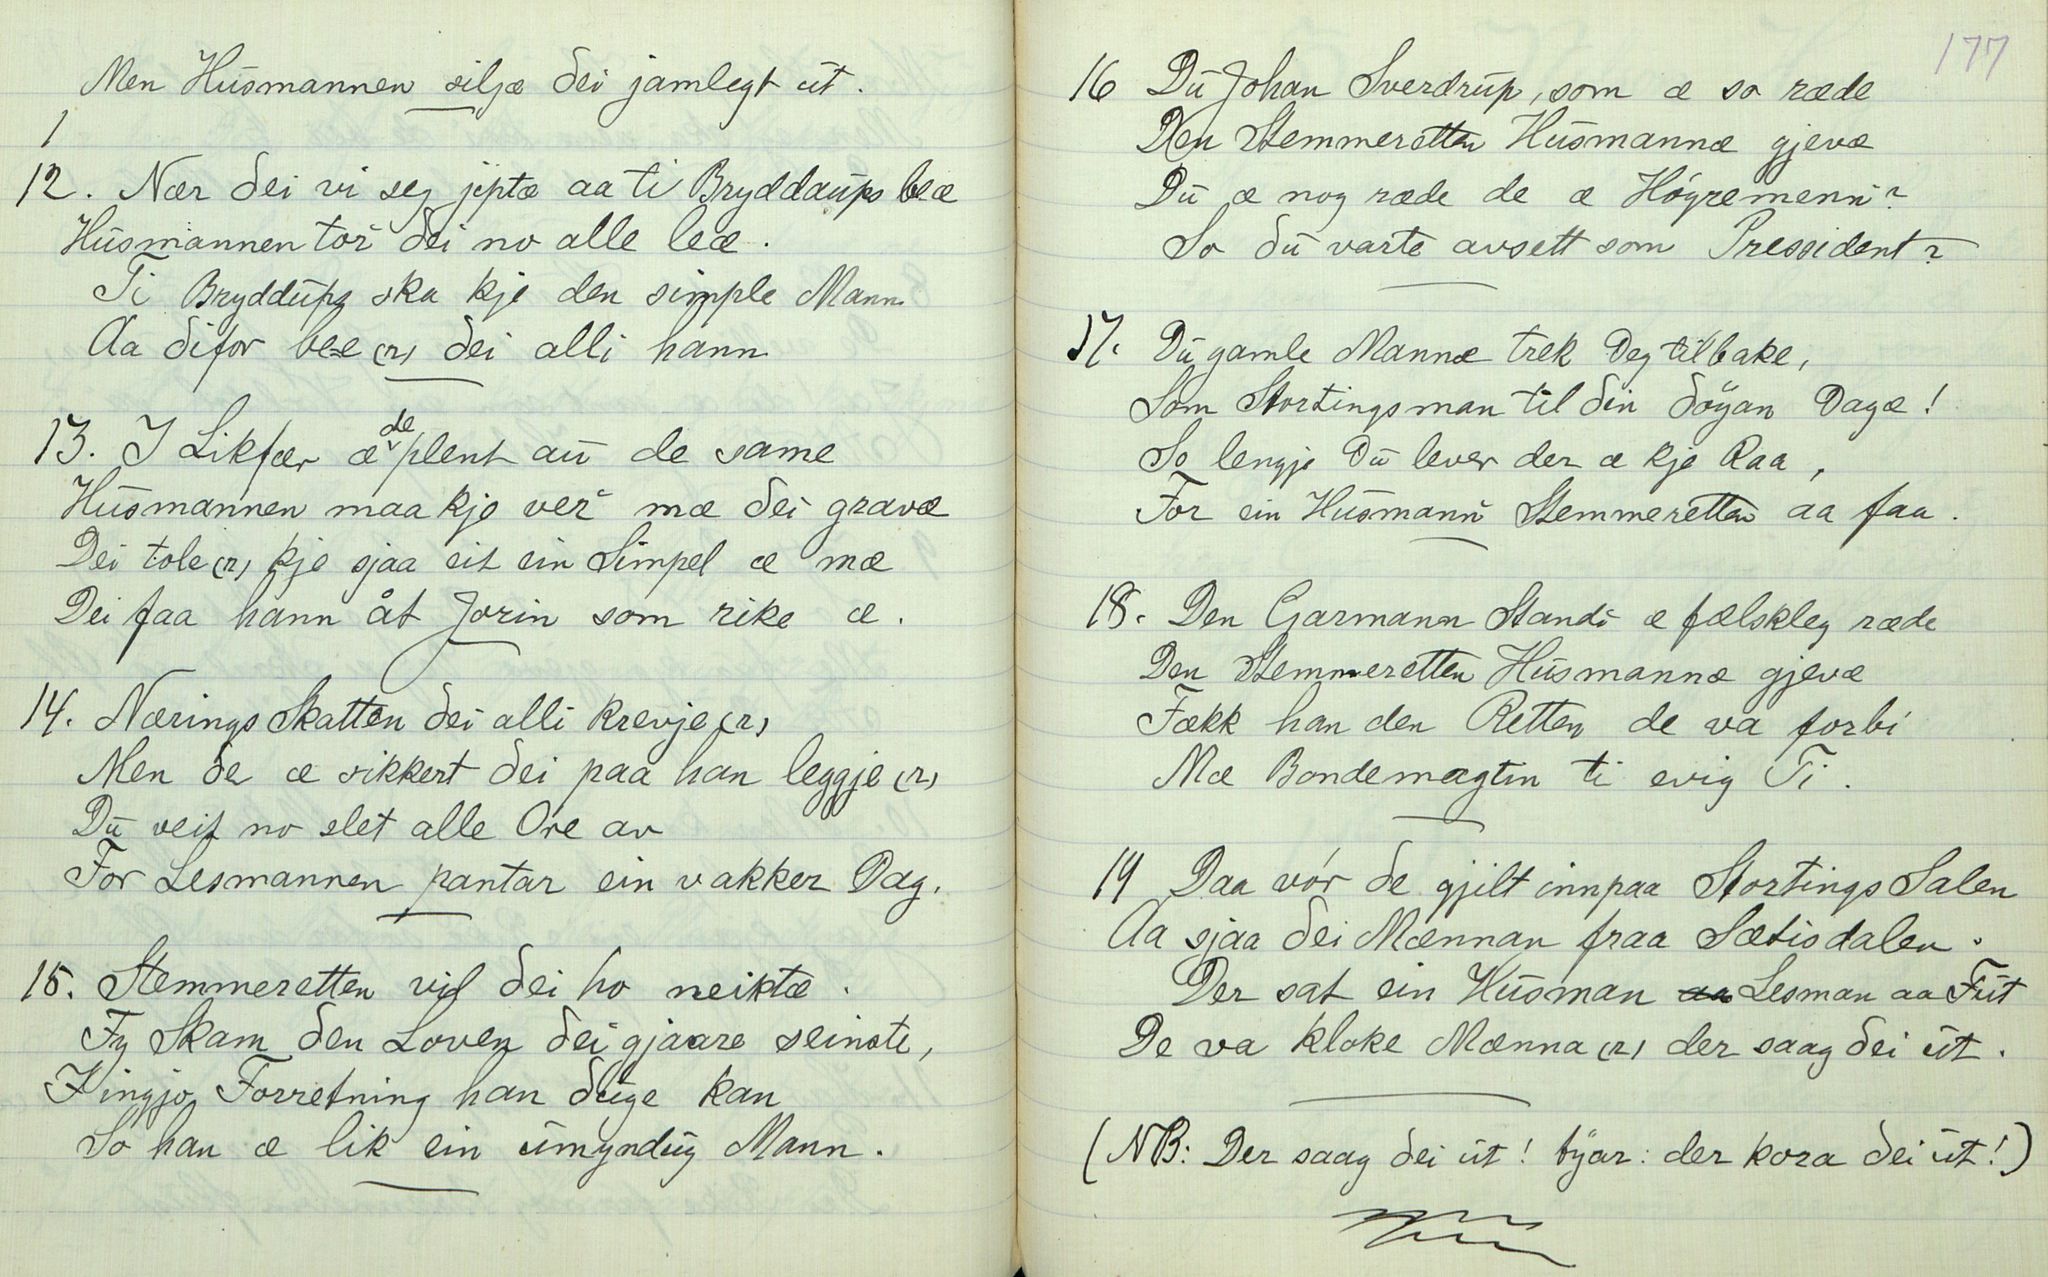 Men Husmannen siljæ dei jamlegt ut.
1
12. Nær dei vi seg jiptæ aa ti Bryddaups beæ
Husmannen tor dei no alle leæ.
Ti Bryddups ska kje den simple Mann
Aa difor bee(r) dei alli hann
13. I Likfær æ de plent au de same
Husmannen maa kje ver mæ dei gravæ
Dei tole(r) kje sjaa eit ein Simpel æ mæ
Dei faa hann åt Jorin som rike æ.
14. Nærings Skatten dei alli krevje(r)
Men de æ sikkert dei paa han leggje(r)
Du veit no slet alle Ore av
For Lesmannen pantar ein vakker Dag.
15. Stemmeretten vil dei ho neiktæ.
Fy Skam den Loven dei gjaare seinste,
Kingjo Forretning han duge kan
So han æ lik ein umyndug Mann.
177
16 Du Johan Sverdrup, som æ so ræde
Den Stemmeretten Husmannæ gjevæ
Du æ nog ræde de æ Högremenn?
So du varte avsett som Pressident?
17. Du gamle Mannæ trek Deg tilbake,
Som Stortingsman til din döyan Dagæ!
So lengje Du lever der æ kje Raa,
For ein Husmann Stemmeretten aa faa.
18. Den Garmann Stand æ fælskleg ræde
Den Stemmeretten Husmannæ gjevæ
Fækk han den Retten de va forbi
Mæ Bondemagtin ti evig Ti.
19 Daa vór de gjilt innpaa Stortings Salen
Aa sjaa dei Mænnan fraa Sætisdalen.
Der sat ein Husman aa Lesman aa Fut
De va kloke Mænna(r) der saag dei ut.
(NB: Der saag dei ut! tyar: der kora dei ut!)